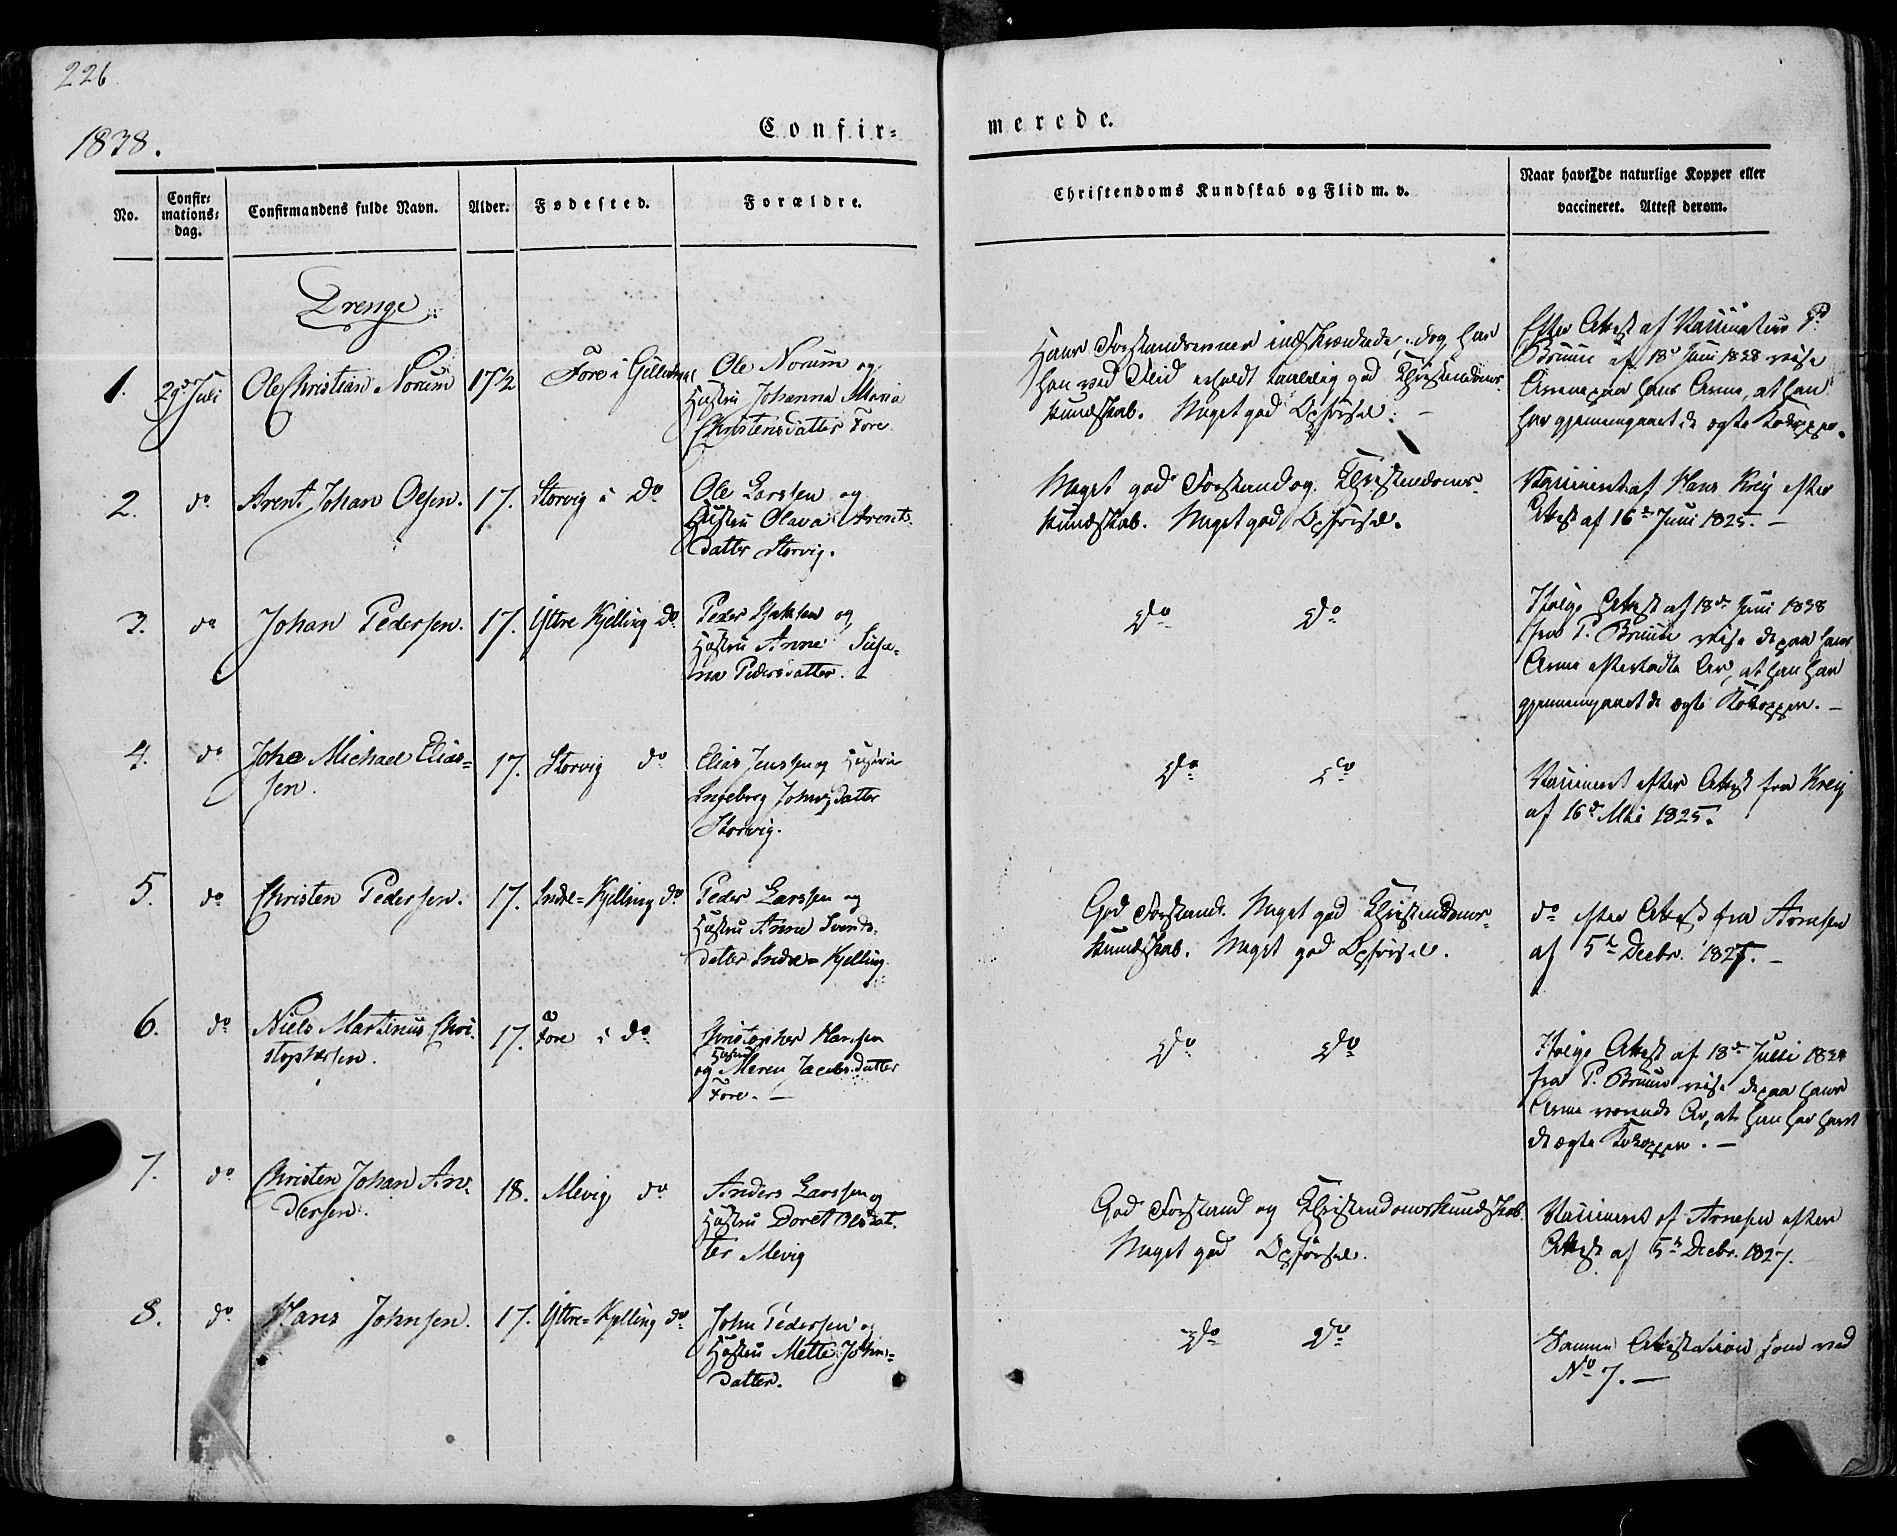 226.
1838.
Confir-
merede.
No.
Confir-
mations-
dag.
Confirmandens fulde Navn.
Alder.
Fødested.
Forældre.
Christendoms Kundskab og Flid m. v.
Naar havt de naturlige Kopper eller
vaccineret. Attest derom.
Drenge
1. 29de Juli Ole Christian Norum 17½ Fore i Gilleskaal Ole Norum og
Hustru Johanna Maria
Christensdatter Fore
Hans Forstandsevner indskrænkede, dog har
han ved Flid erholdt temmelig god Christendoms-
kundskab. Meget god Opførsel.
Efter Attest af Vaccinateur P.
Bruun af 18de Juni 1838 vise
Arrene paa hans Arme, at han
har gjennemgaaet de ægte Kokopper.
2. do Arent Johan Olsen. 17. Storvig i do Ole Larssen og
Hustru Olava Arents-
datter Storvig.
Meget god Forstand og Christendoms-
kundskab. Meget god Opførsel.
Vaccineret af Hans Krey efter
Attest af 16de Juni 1825. –
3. do Johan Pedersen. 17. Yttre Kjelling do Peder Isaksen og
Hustru Anne Susa-
na Pedersdatter.
do do
Ifølge Attest af 18de Juni 1838
fra P. Bruun vise de paa hans
Arme efterladte Ar, at han har
gjennemgaaet de ægte Kokopper. –
4. do Joha Michael Elias-
sen. 17. Storvig do Elias Jenssen og Hustru
Ingeborg Johnsdatter
Storvig.
do do
Vaccineret efter Attest fra Krey
af 16de Mai 1825.
5. do Christen Pedersen. 17. Indre-Kjelling do Peder Larssen og
Hustru Anne Svends-
datter Indre-Kjelling
God Forstand. Meget god Christendoms-
kundskab. Meget god Opførsel.
do efter Attest fra Arnesen
af 5te Decbr. 1827. –
6. do Niels Martinus Chri-
stophersen. 17. Fore i do Christopher Hansen
og Hustru Meren Jacobsdatter
Fore. –
do do
Ifølge Attest af 18de Juli 1838
fra P. Bruun vise de paa hans
Arme værende Ar, at han har havt
de ægte Kokopper. –
7. do Christen Johan An-
dersen. 18. Mevig do Anders Larssen og
Hustru Doret Olsdat-
ter Mevig
God Forstand og Christendomskundskab.
Meget god Opførsel.
Vaccineret af Arnesen efter
Attest af 5te Decbr. 1827.
8. do Hans Johnsen. 17. Yttre-Kjelling do John Pedersen og
Hustru Mette Johns-
datter.
do do
Samme Attestation som ved
No 7. –